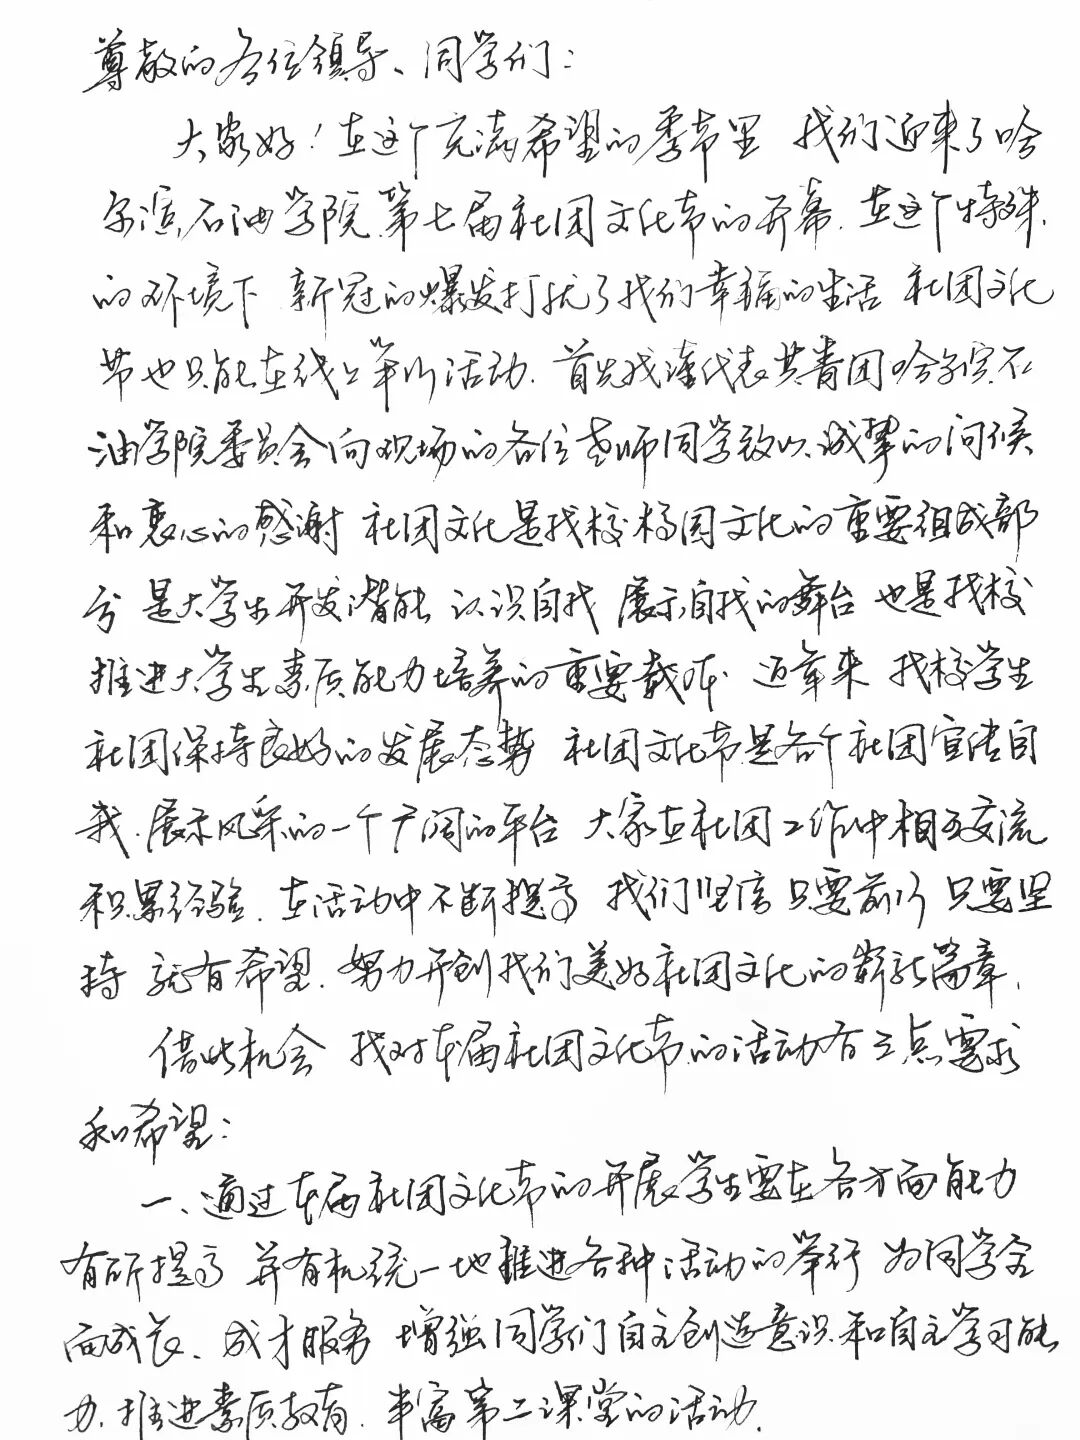 尊敬的各位领导、同学们:
大家好!在这个充满希望的季节里 我们迎来了哈
尔滨石油学院第七届社团文化节的开幕.在这个特殊
的环境下 新冠的爆发打扰了我们幸福的生活 社团文化
节也只能在线上举行活动.首先我谨代表共青团哈尔滨石
油学院委员会向现场的各位老师同学致以诚挚的问候
和衷心的感谢 社团文化是我校校园文化的重要组成部
分 是大学生开发潜能 认识自我 展示自我的舞台 也是我校
推进大学生素质能力培养的重要载体.近年来 我校学生
社团保持良好的发展态势 社团文化节是各个社团宣传自
我.展示风采的一个广阔的平台 大家在社团工作中相互交流
积累经验.在活动中不断提高 我们坚信 只要前行 只要坚
持 就有希望.努力开创我们美好社团文化的崭新篇章.
借此机会 我对本届社团文化节的活动有三点要求
和希望:
一、通过本届社团文化节的开展 学生要在各方面能力
有所提高 并有机统一地推进各种活动的举行 为同学全
面成长、成才服务 增强同学们自主创造意识和自主学习能
力.推进素质教育.丰富第二课堂的活动.